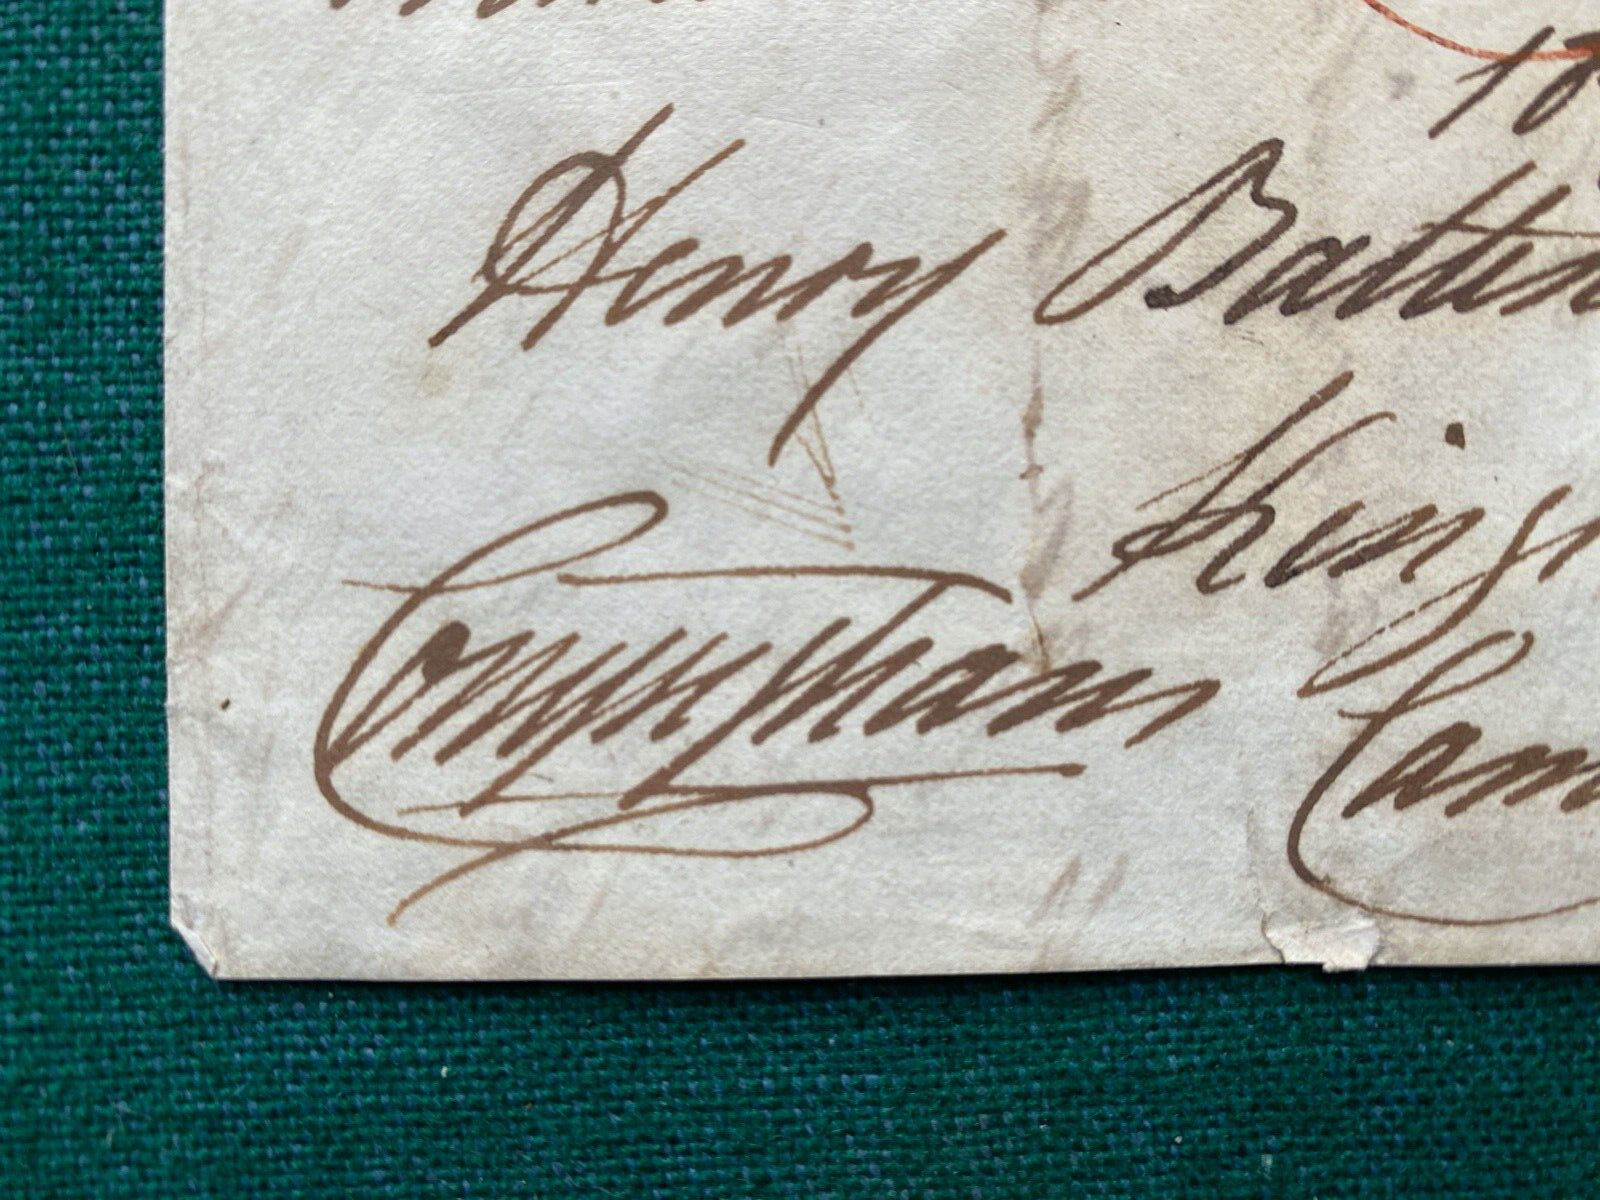 Henry Batten
King
Conyngham Cam